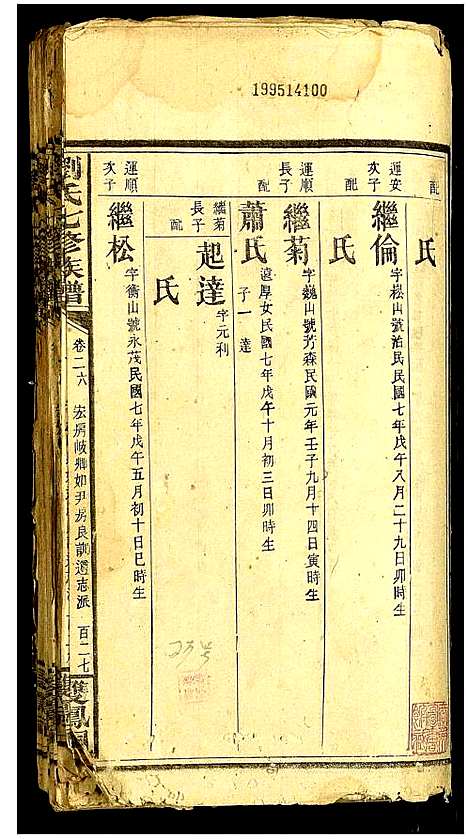 199514100
配
氏
運安
次子
繼倫
字崧山號治民民國七年戊午八月二十九日卯時生
配
氏
運順
長子
繼菊
字巍山號芳森民國元年壬子九月十四日寅時生
配
蕭氏
遠厚女民國七年戊午十月初三日卯時生
子一 達
繼菊
長子
起達
字元利
配
氏
運順
次子
繼松
字衡山號永茂民國七年戊午五月初十日巳時生
劉氏七修族譜
卷二六
宏房岐卿如尹房良
志派
百二七
雙鳳